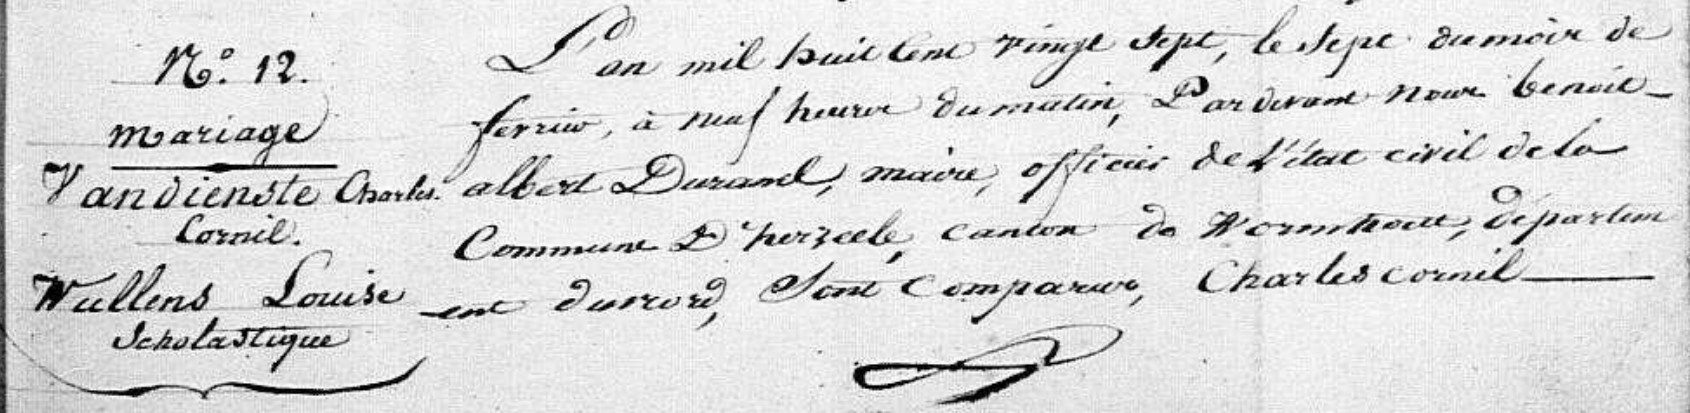 N.° 12.
Mariage
Vandienste Charles
Cornil.
Wullens Louise
Scholastique
L'an mil huit Cent vingt Sept, le Sept du mois de
fevrier, à neuf heures du matin, Pardevant Nous benoit-
albert Durand, maire, officier de L'état civil de la
Commune D'herzeele, canton de Wormhoutt, départem
-ent du nord, Sont Comparus, Charles cornil